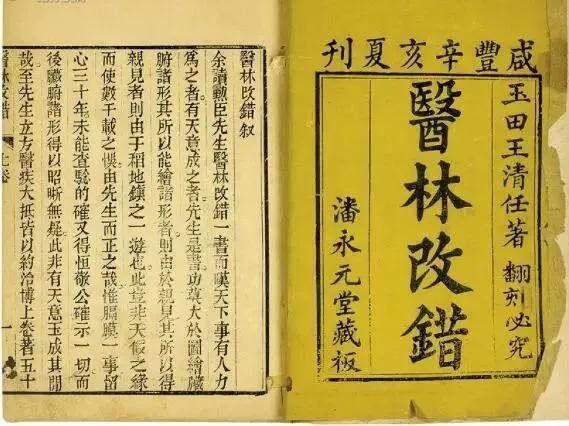 刊夏亥辛豐咸
玉田王清任著 翻刻必究
醫林改錯
潘永元堂藏板
醫林改錯叙
余讀勲臣先生醫林改錯一書而嘆天下事有人力
爲之者有天意成之者先生是書功莫大於圖繪臟
腑諸形其所以能繪諸形者則由於親見其所以得
親見者則由于稻地鎮之一遊也此豈非天假之緣
而使數千載之悞由先生而正之哉惟膈膜一事留
心三十年未能查驗的確又得恒敬公確示一切而
後臟腑諸形得以昭晰無疑此非有天意玉成其間
哉至先生立方醫疾大抵皆以約治博上卷著五十
醫林改錯 上卷 一